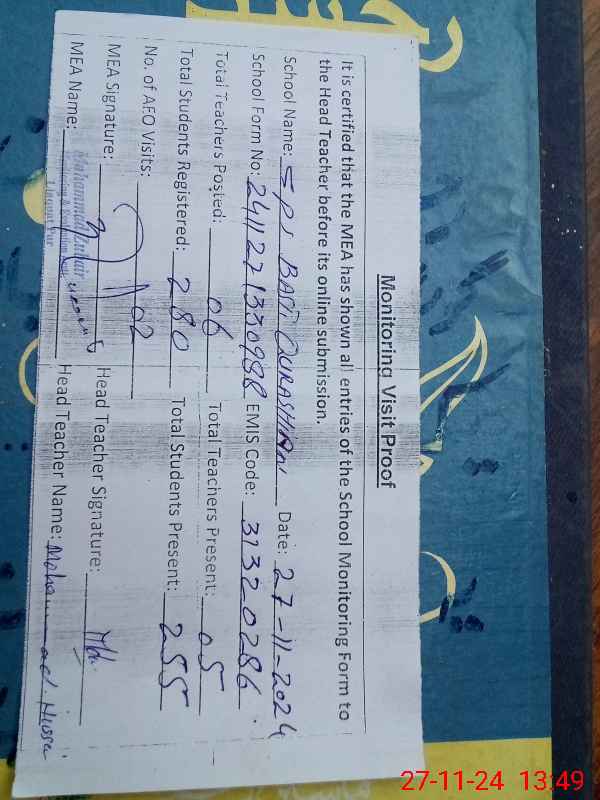 Monitoring Visit Proof
It is certified that the MEA has shown all entries of the School Monitoring Form to
the Head Teacher before its online submission.
School Name: GPS BASTI QURASHIAN Date: 27-11-2024
School Form No: 2411271330988 EMIS Code: 31320286
Total Teachers Posted: 06 Total Teachers Present: 05
Total Students Registered: 280 Total Students Present: 255
No. of AEO Visits: 02
MEA Signature: Head Teacher Signature:
MEA Name: Muhammad Zubair Head Teacher Name: Mohammad Hussai
27-11-24 13:49